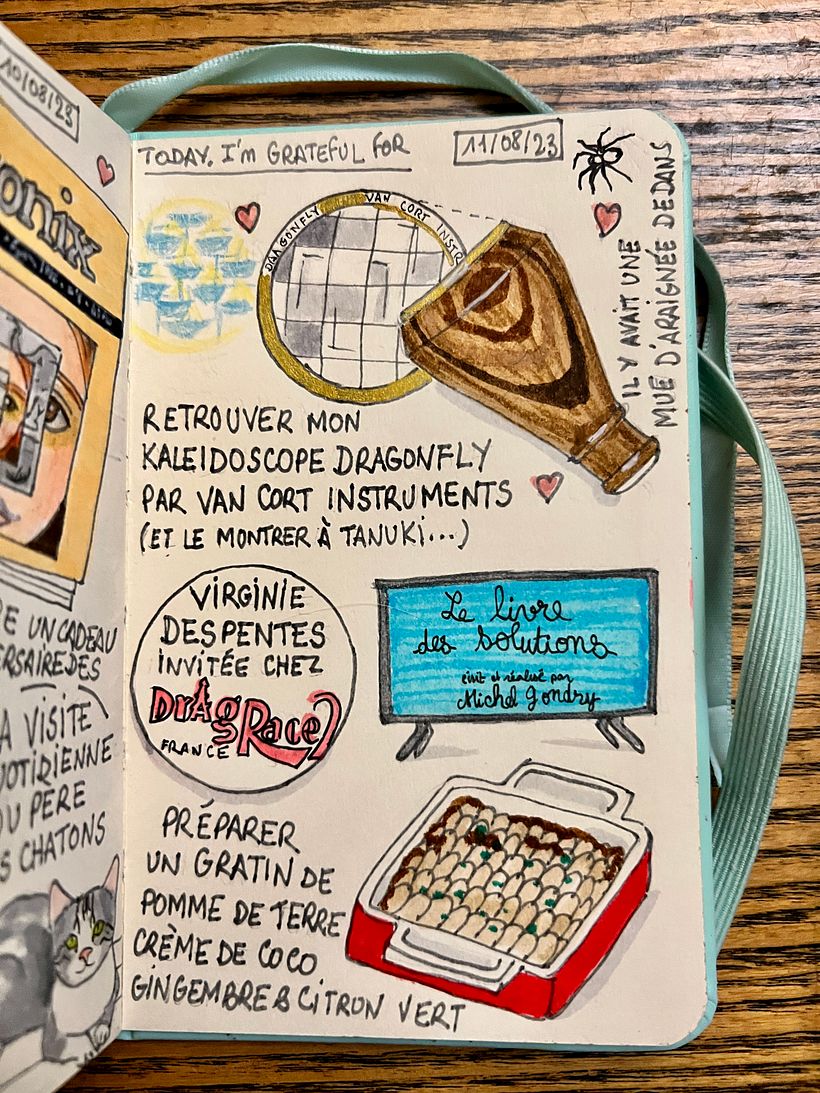 10/08/23
onix
UN CADEAU
VISITE
QUOTIDIENNE
PÈRE
CHATONS
TODAY, I'M GRATEFUL FOR
11/08/23
DRAGONFLY VAN CORT INSTR
IL Y AVAIT UNE
MUE D'ARAIGNÉE DEDANS
RETROUVER MON
KALEIDOSCOPE DRAGONFLY
PAR VAN CORT INSTRUMENTS
(ET LE MONTRER À TANUKI...)
VIRGINIE
DESPENTES
INVITÉE CHEZ
DrAg Race
FRANCE
Le livre
des solutions
écrit et réalisé par
Michel Gondry
PRÉPARER
UN GRATIN DE
POMME DE TERRE
CRÈME DE COCO
GINGEMBRE & CITRON VERT